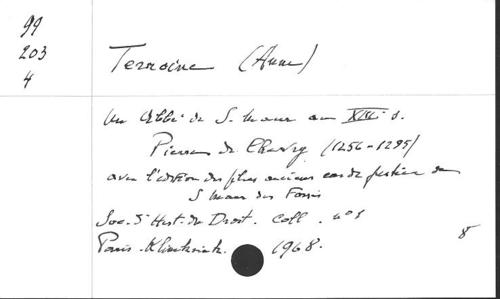 99
203
4
Terroine (Anne)
Un Abbé de S. Maur au XIIIe s.
Pierre de Chevry (1256-1285)
avec l'édition des plus anciens cas de justice de
S Maur des Fossés
Soc. d'Hist. du Droit. Coll. n° 1
Paris. Klincksieck. 1968. 8